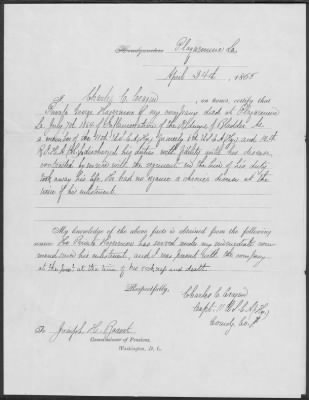 Headquarters Plaquemine La
April 24th, 1865
I, Charles C. Cragin, on honor, certify that
Private George Hagerman of my company died at Plaquemine
La July 7th 1864 of Inflammation of the Kidneys & Bladder. As
a member of the 11th U.S.C.A. (Hy) formerly 14th
R.I.H.A. he discharged his duties with fidelity until his disease,
contracted in service with the regiment in the line of his duty
took away his life. He had no signs of a chronic disease at the
time of his enlistment.
My knowledge of the above facts is obtained from the following
source: The Private Hagerman has served under my immediate com
mand since his enlistment, and I was present with the company
at the post at the time of his sickness and death.
Respectfully,
Charles C. Cragin
Capt. 11 U.S.C.A. (Hy)
Comdg Co.
To Joseph H. Barrett
Commissioner of Pensions,
Washington, D. C.